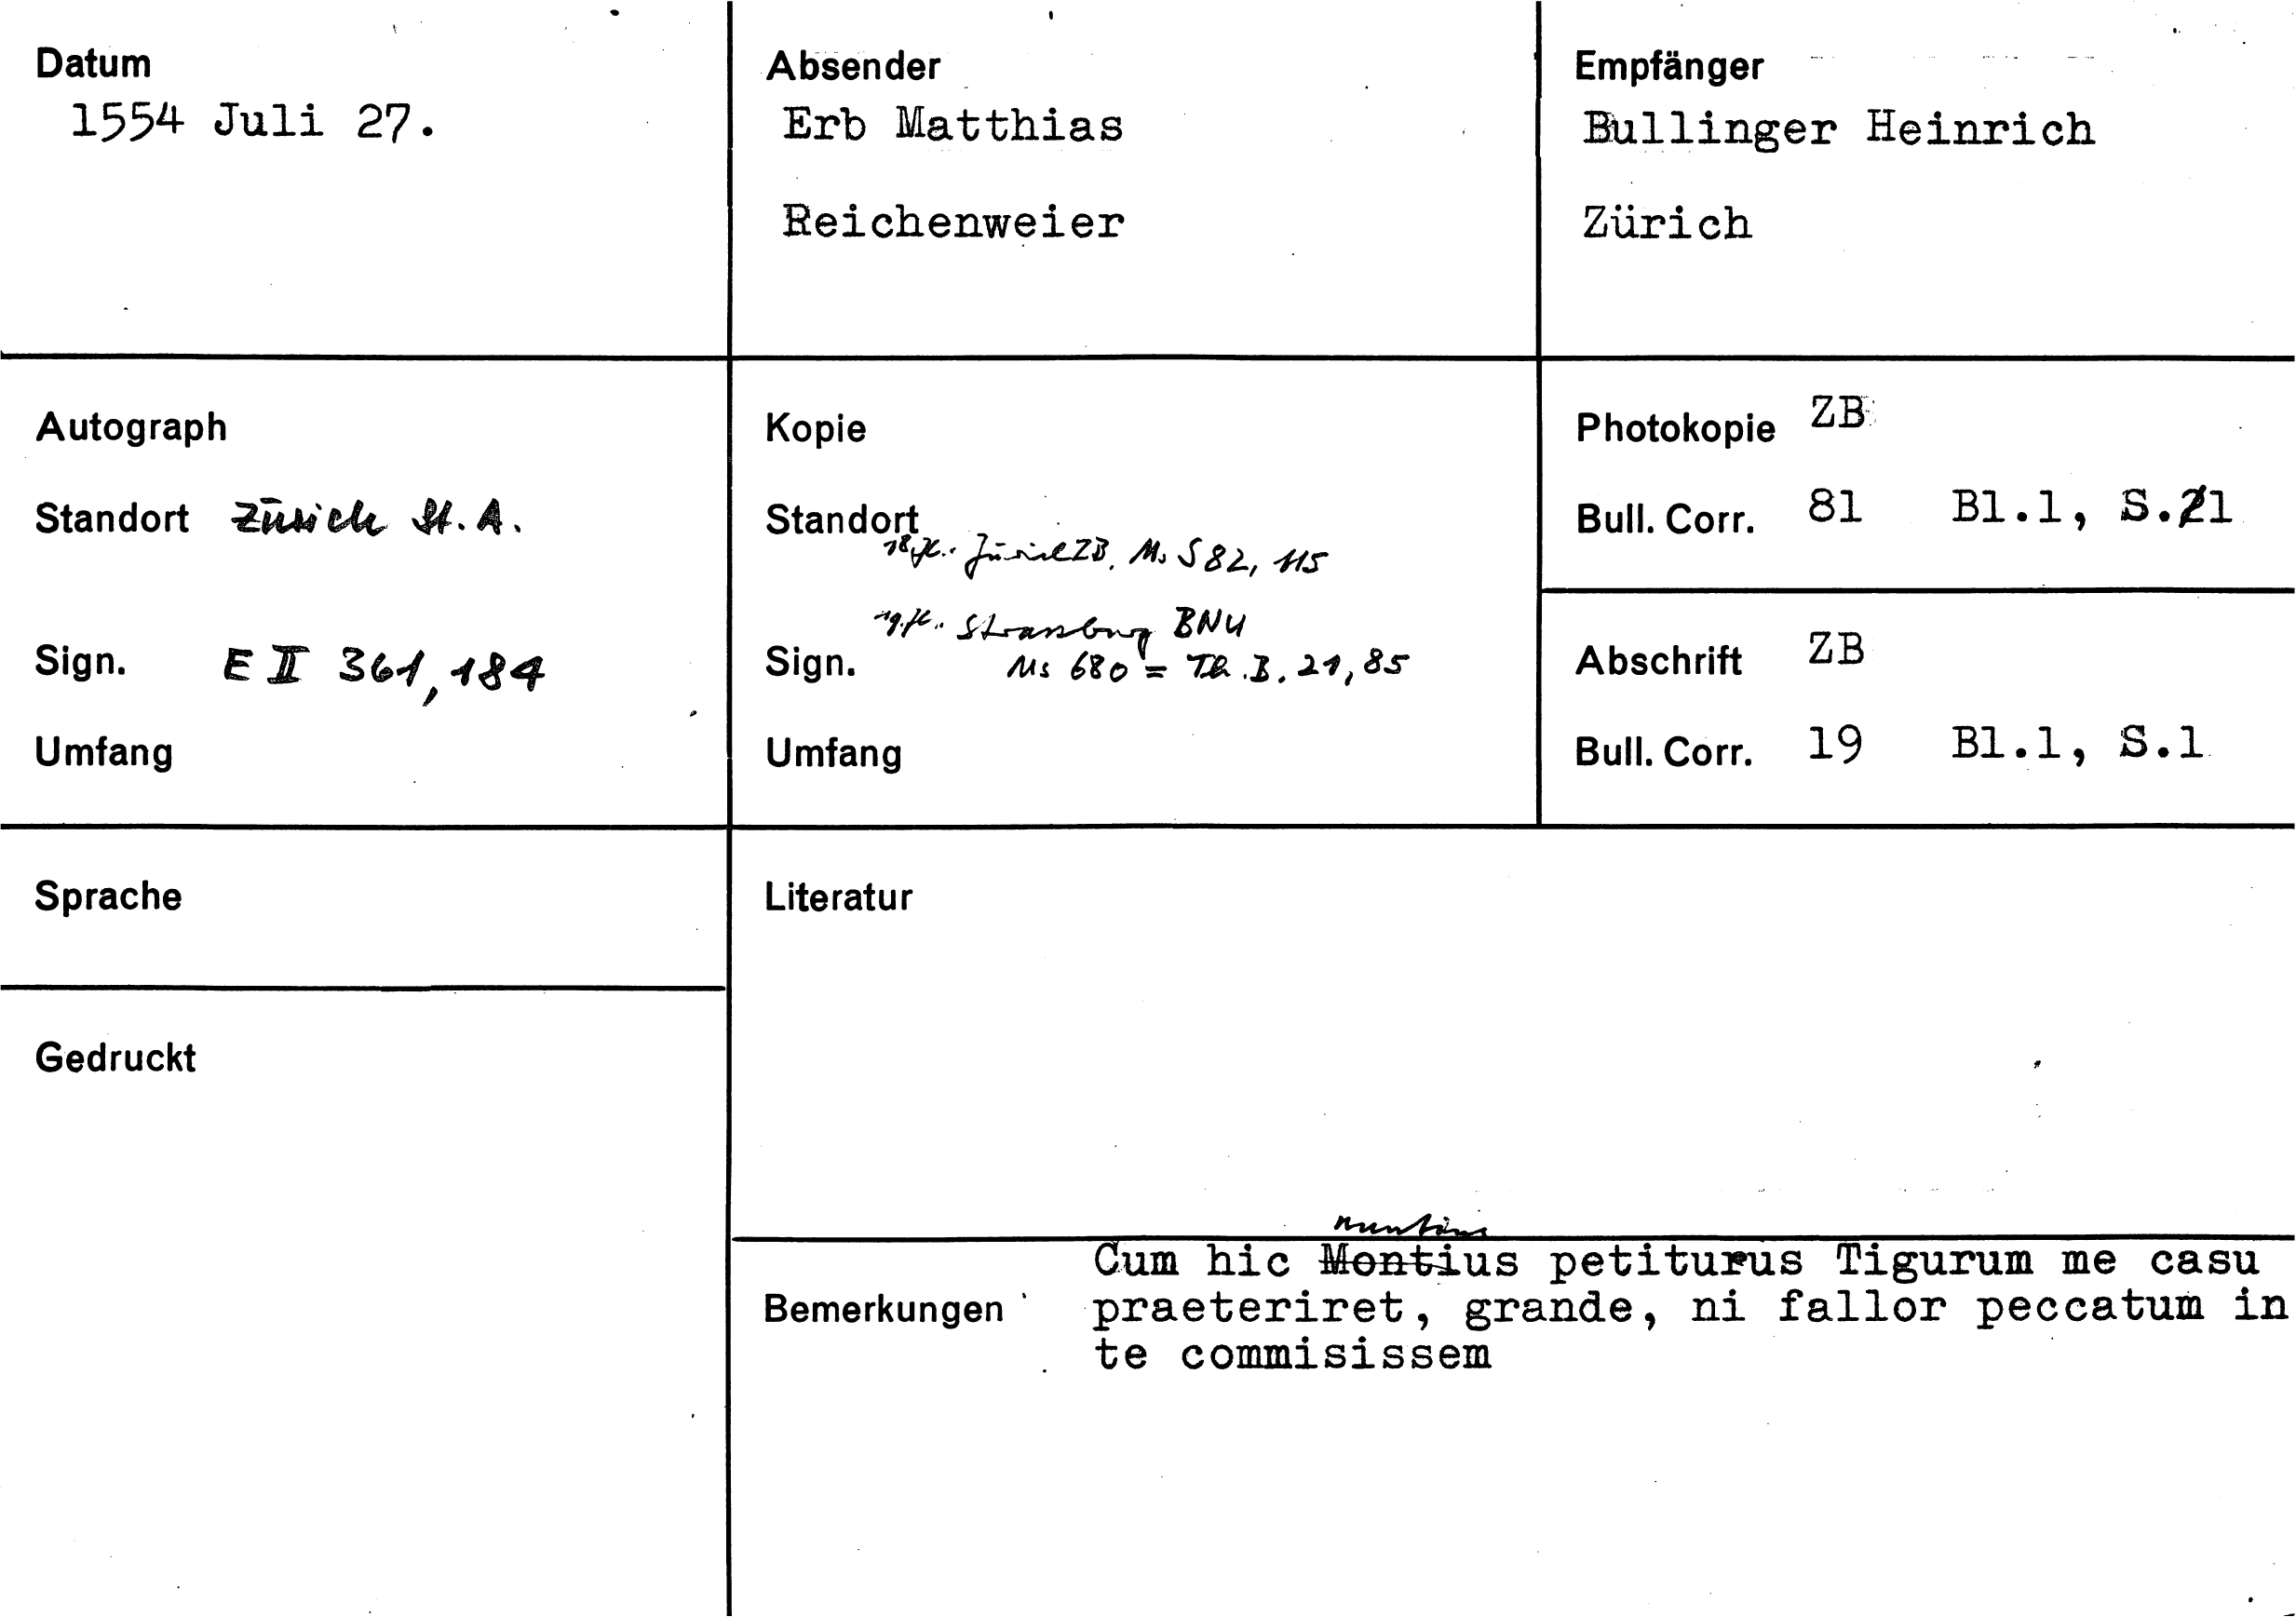 Datum
1554 Juli 27.
Absender
Erb Matthias
Reichenweier
Empfänger
Bullinger Heinrich
Zürich
Autograph
Standort Zürich St.A.
Sign. E II 361,184
Umfang
Kopie
Standort
18.Jh.: Zürich ZB, Ms S 82, 115
19.Jh.: Strassburg BNU
Sign. Ms 680 = Th.B. 21,85
Umfang
Photokopie ZB
Bull. Corr. 81 Bl.1, S.1
Abschrift ZB
Bull. Corr. 19 Bl.1, S.1
Sprache
Gedruckt
Literatur
nuntius
Cum hic Montius petiturus Tigurum me casu
Bemerkungen praeteriret, grande, ni fallor peccatum in
te commisissem